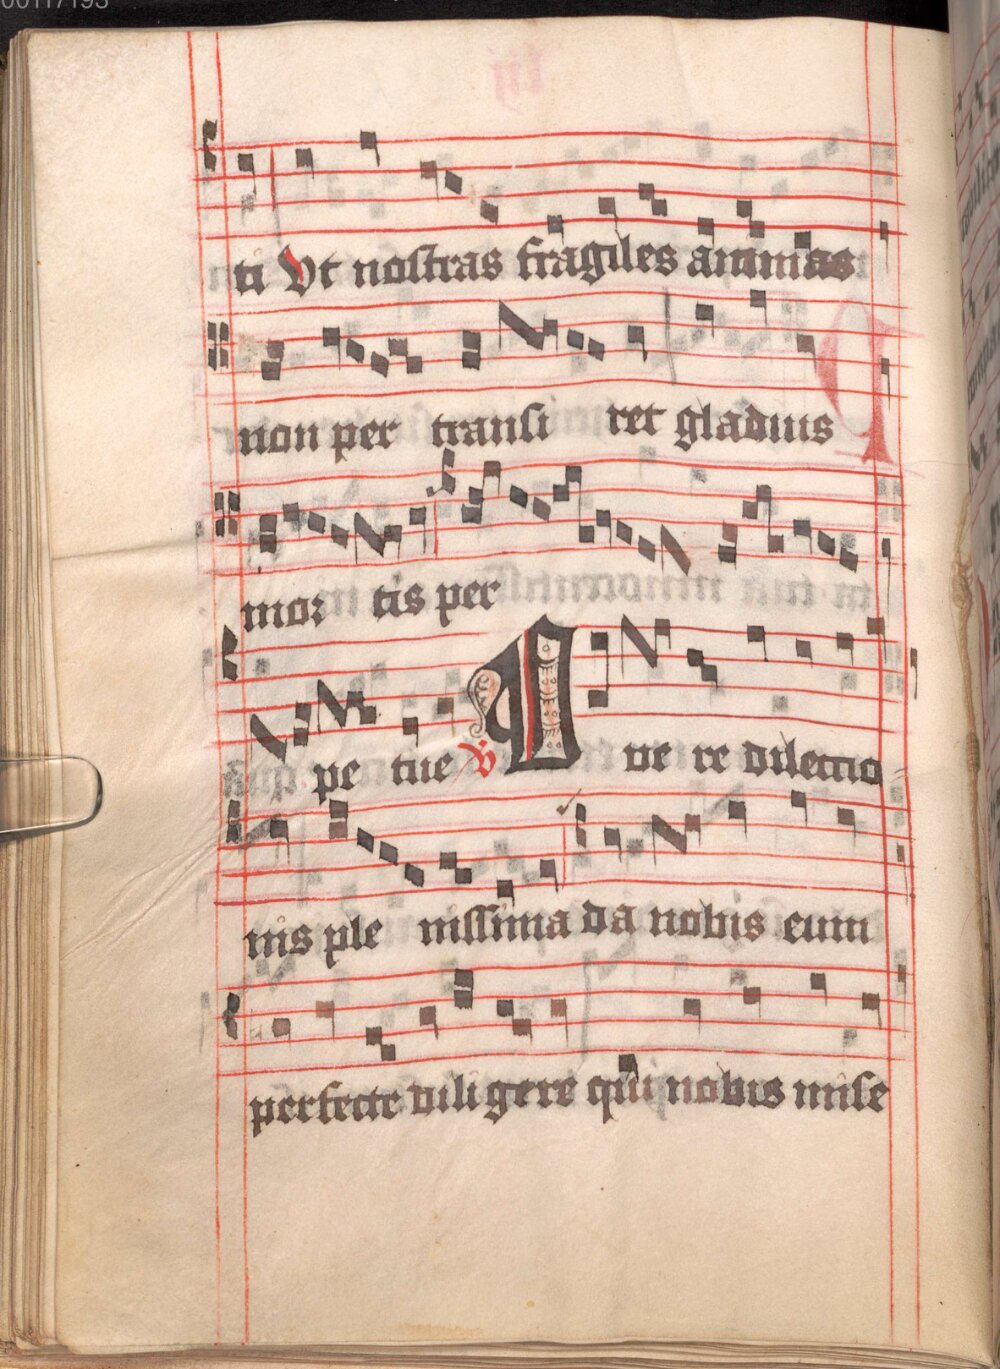 00117193
ti Vt nostras fragiles animas
non per transi ret gladius
mor tis per
pe tue V A ve re dilectio
nis ple nissima da nobis eum
perfecte dili gere qui nobis mise